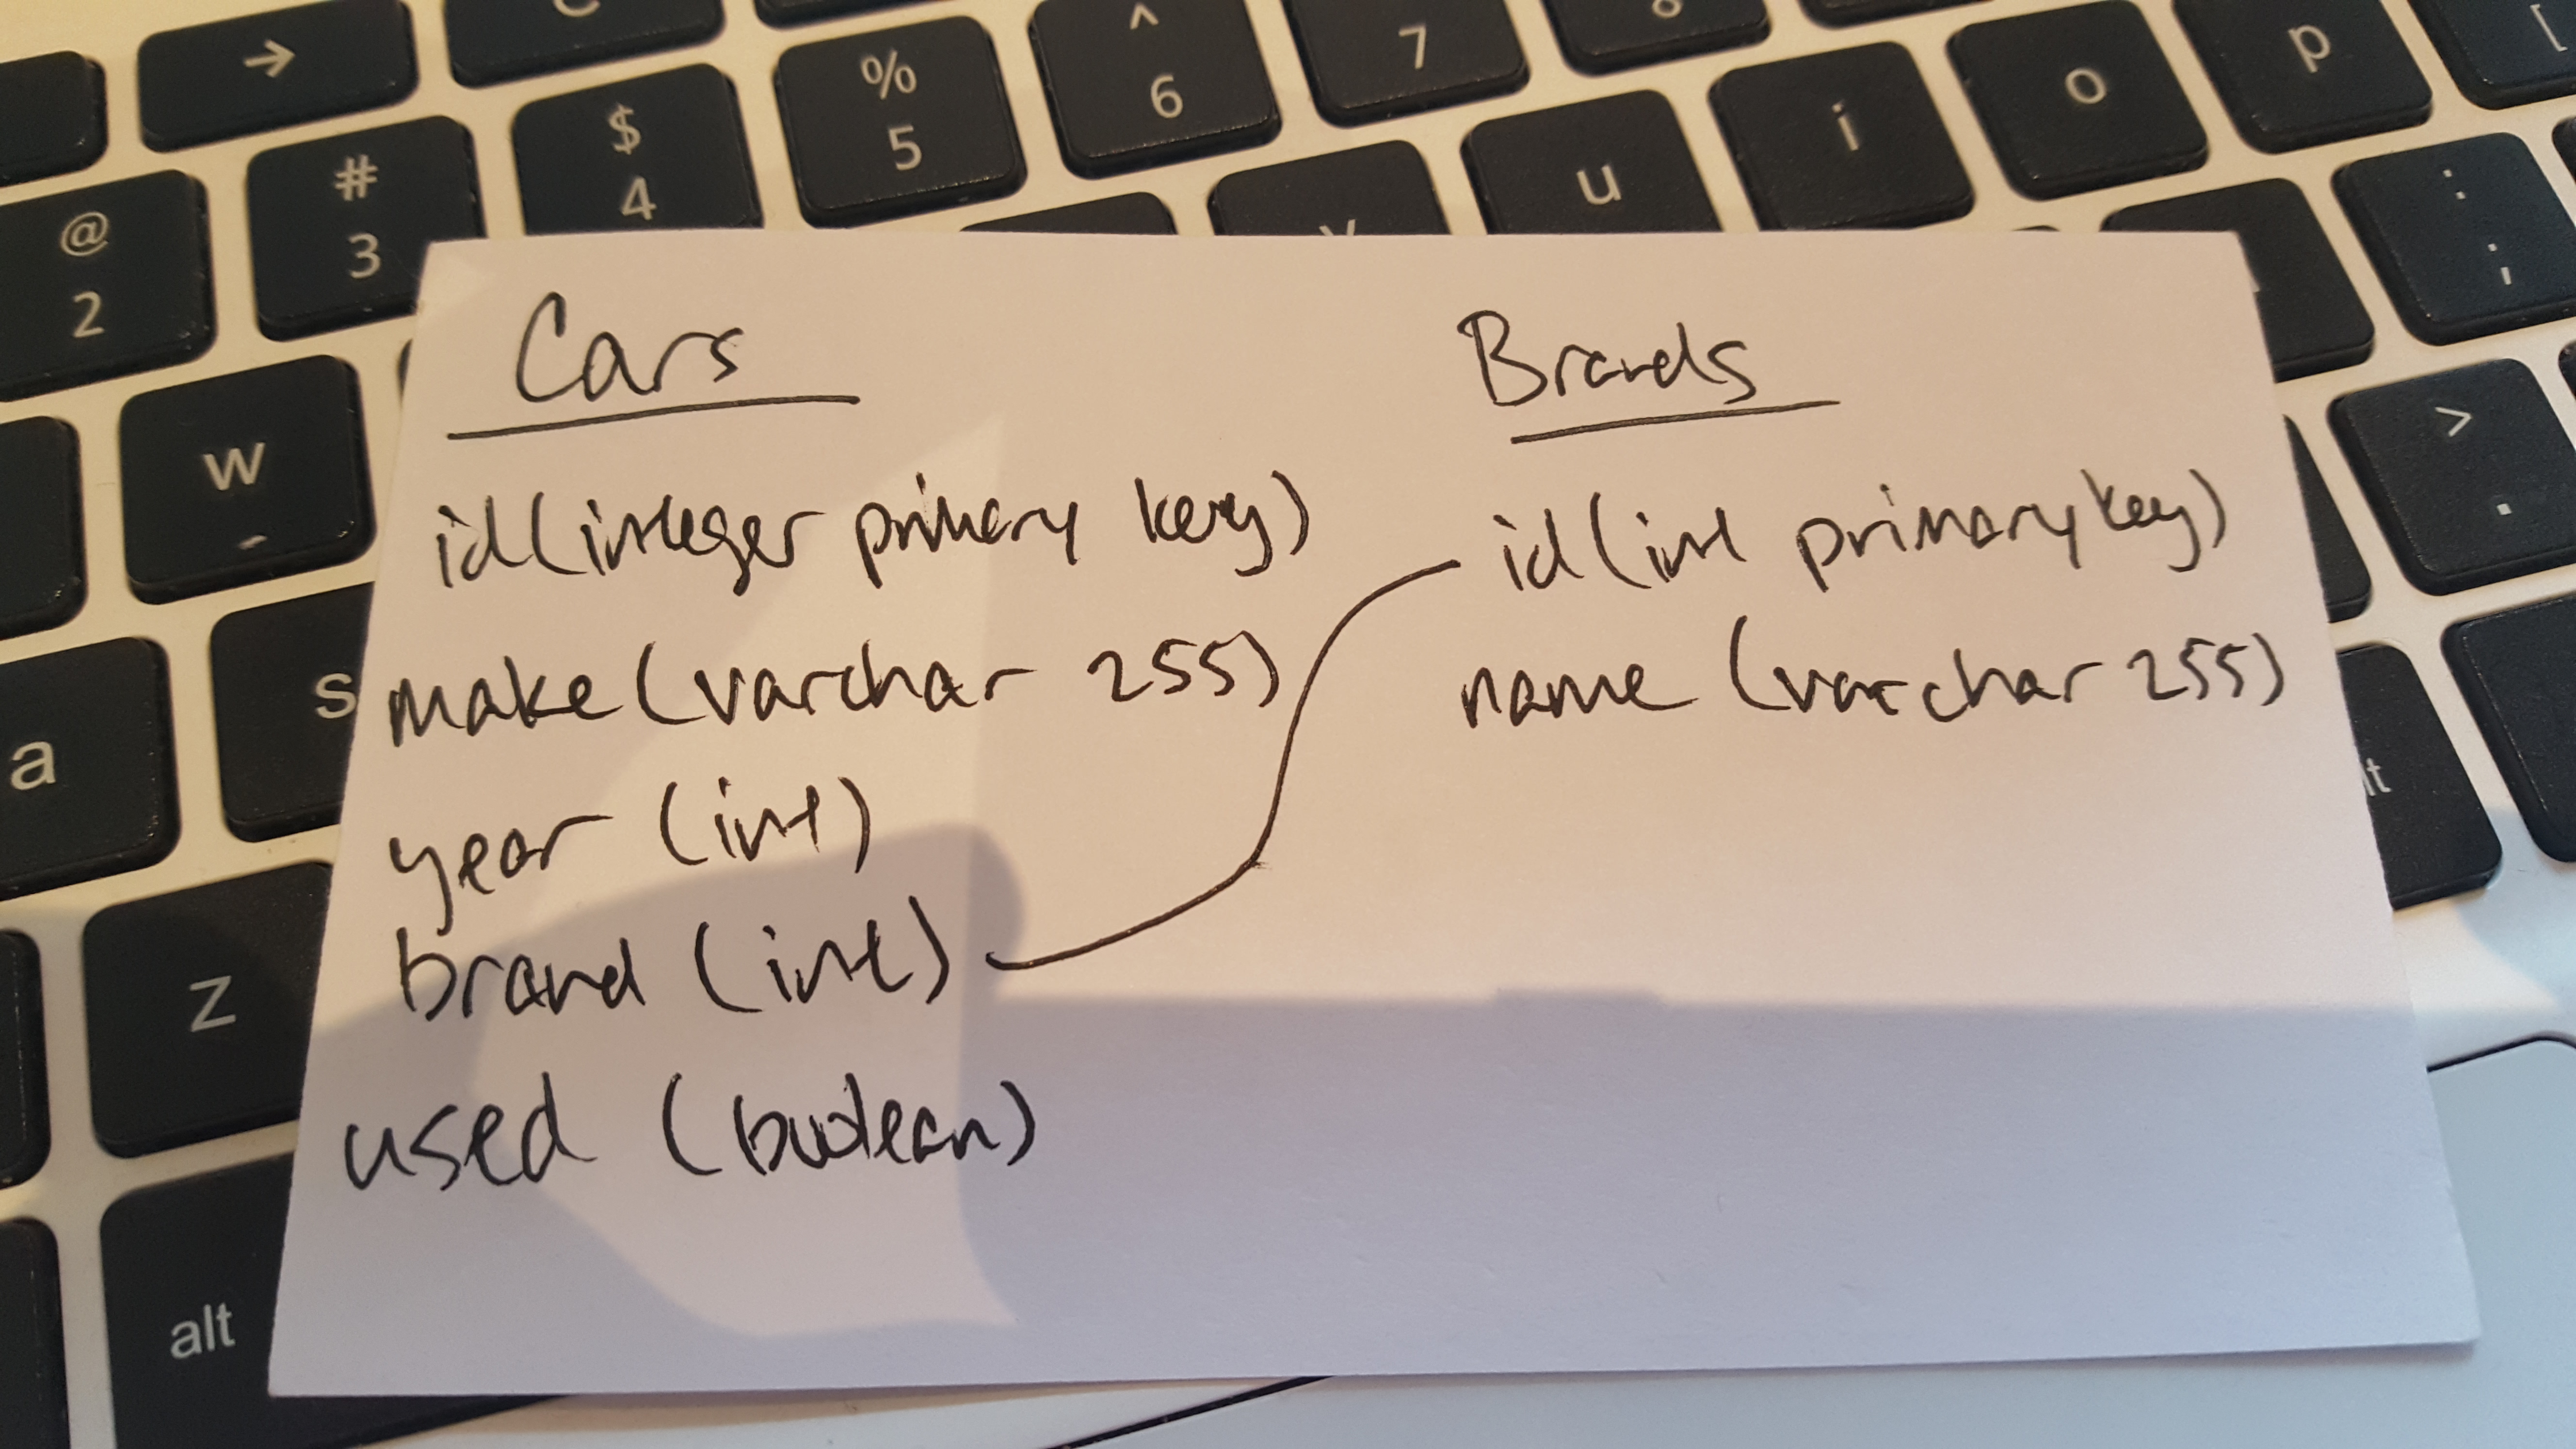 →
@ 2
# 3
$ 4
% 5
^ 6
7
u
i
o
p
[
: ;
w
> .
a
s
z
alt
Cars
id (integer primary key)
make (varchar 255)
year (int)
brand (int)
used (boolean)
Brands
id (int primary key)
name (varchar 255)